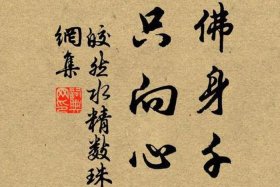 佛身千
只向心
皎然水精数珠
網集